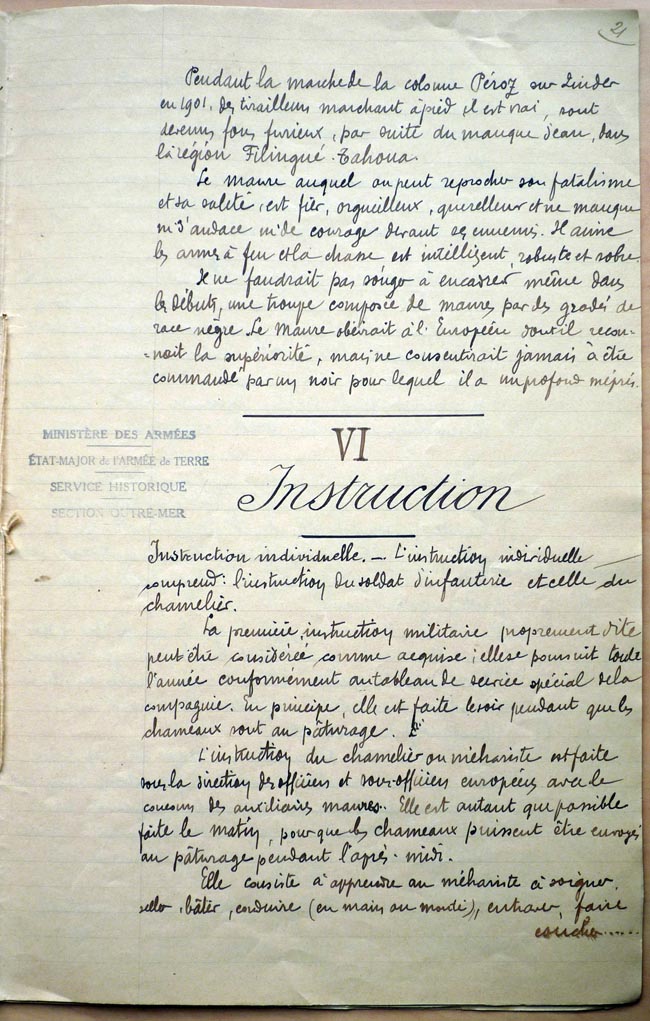 21
Pendant la marche de la colonne Péroz sur Zinder
en 1901, des tirailleurs marchant à pied il est vrai, sont
devenus fous furieux, par suite du manque d'eau, dans
la région Filingué-Tahoua.
Le maure auquel on peut reprocher son fatalisme
et sa saleté, est fier, orgueilleux, querelleur et ne manque
ni d'audace ni de courage devant ses ennemis. Il aime
les armes à feu et la chasse est intelligent, robuste et sobre.
Il ne faudrait pas songer à encadrer même dans
les débuts, une troupe composée de maures par des gradés de
race nègre. Le Maure obéirait à l'Européen dont il recon-
-naît la supériorité, mais ne consentirait jamais à être
commandé par un noir pour lequel il a un profond mépris.
MINISTÈRE DES ARMÉES
ÉTAT-MAJOR de l'ARMÉE de TERRE
SERVICE HISTORIQUE
SECTION OUTRE-MER
VI
Instruction
Instruction individuelle. — L'instruction individuelle
comprend: l'instruction du soldat d'infanterie et celle du
chamelier.
La première, instruction militaire proprement dite
peut être considérée comme acquise; elle se poursuit toute
l'année conformément au tableau de service spécial de la
compagnie. En principe, elle est faite le soir pendant que les
chameaux sont au pâturage.
L'instruction du chamelier ou méhariste est faite
sous la direction des officiers et sous-officiers européens avec le
concours des auxiliaires maures. Elle est autant que possible
faite le matin, pour que les chameaux puissent être envoyés
au pâturage pendant l'après-midi.
Elle consiste à apprendre au méhariste à soigner,
seller, bâter, conduire (en main ou monté), entraver, faire
coucher.....